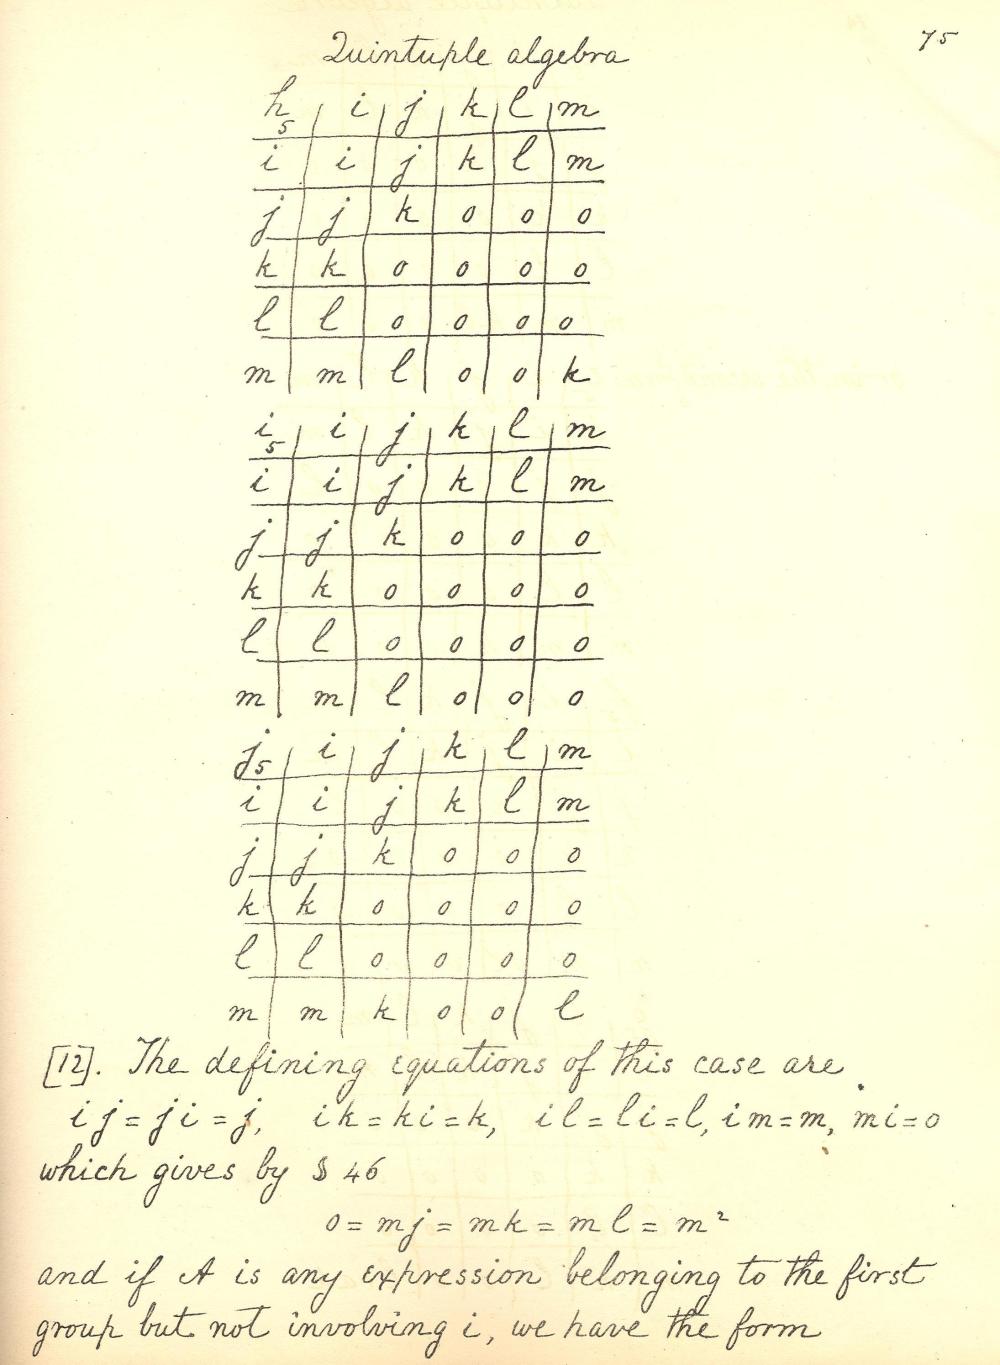 75
Quintuple algebra
h5 i j k l m
i i j k l m
j j k 0 0 0
k k 0 0 0 0
l l 0 0 0 0
m m l 0 0 k
i5 i j k l m
i i j k l m
j j k 0 0 0
k k 0 0 0 0
l l 0 0 0 0
m m l 0 0 0
j5 i j k l m
i i j k l m
j j k 0 0 0
k k 0 0 0 0
l l 0 0 0 0
m m k 0 0 l
[12]. The defining equations of this case are
ij = ji = j, ik = ki = k, il = li = l, im = m, mi = 0
which gives by § 46
0 = mj = mk = ml = m²
and if A is any expression belonging to the first
group but not involving i, we have the form